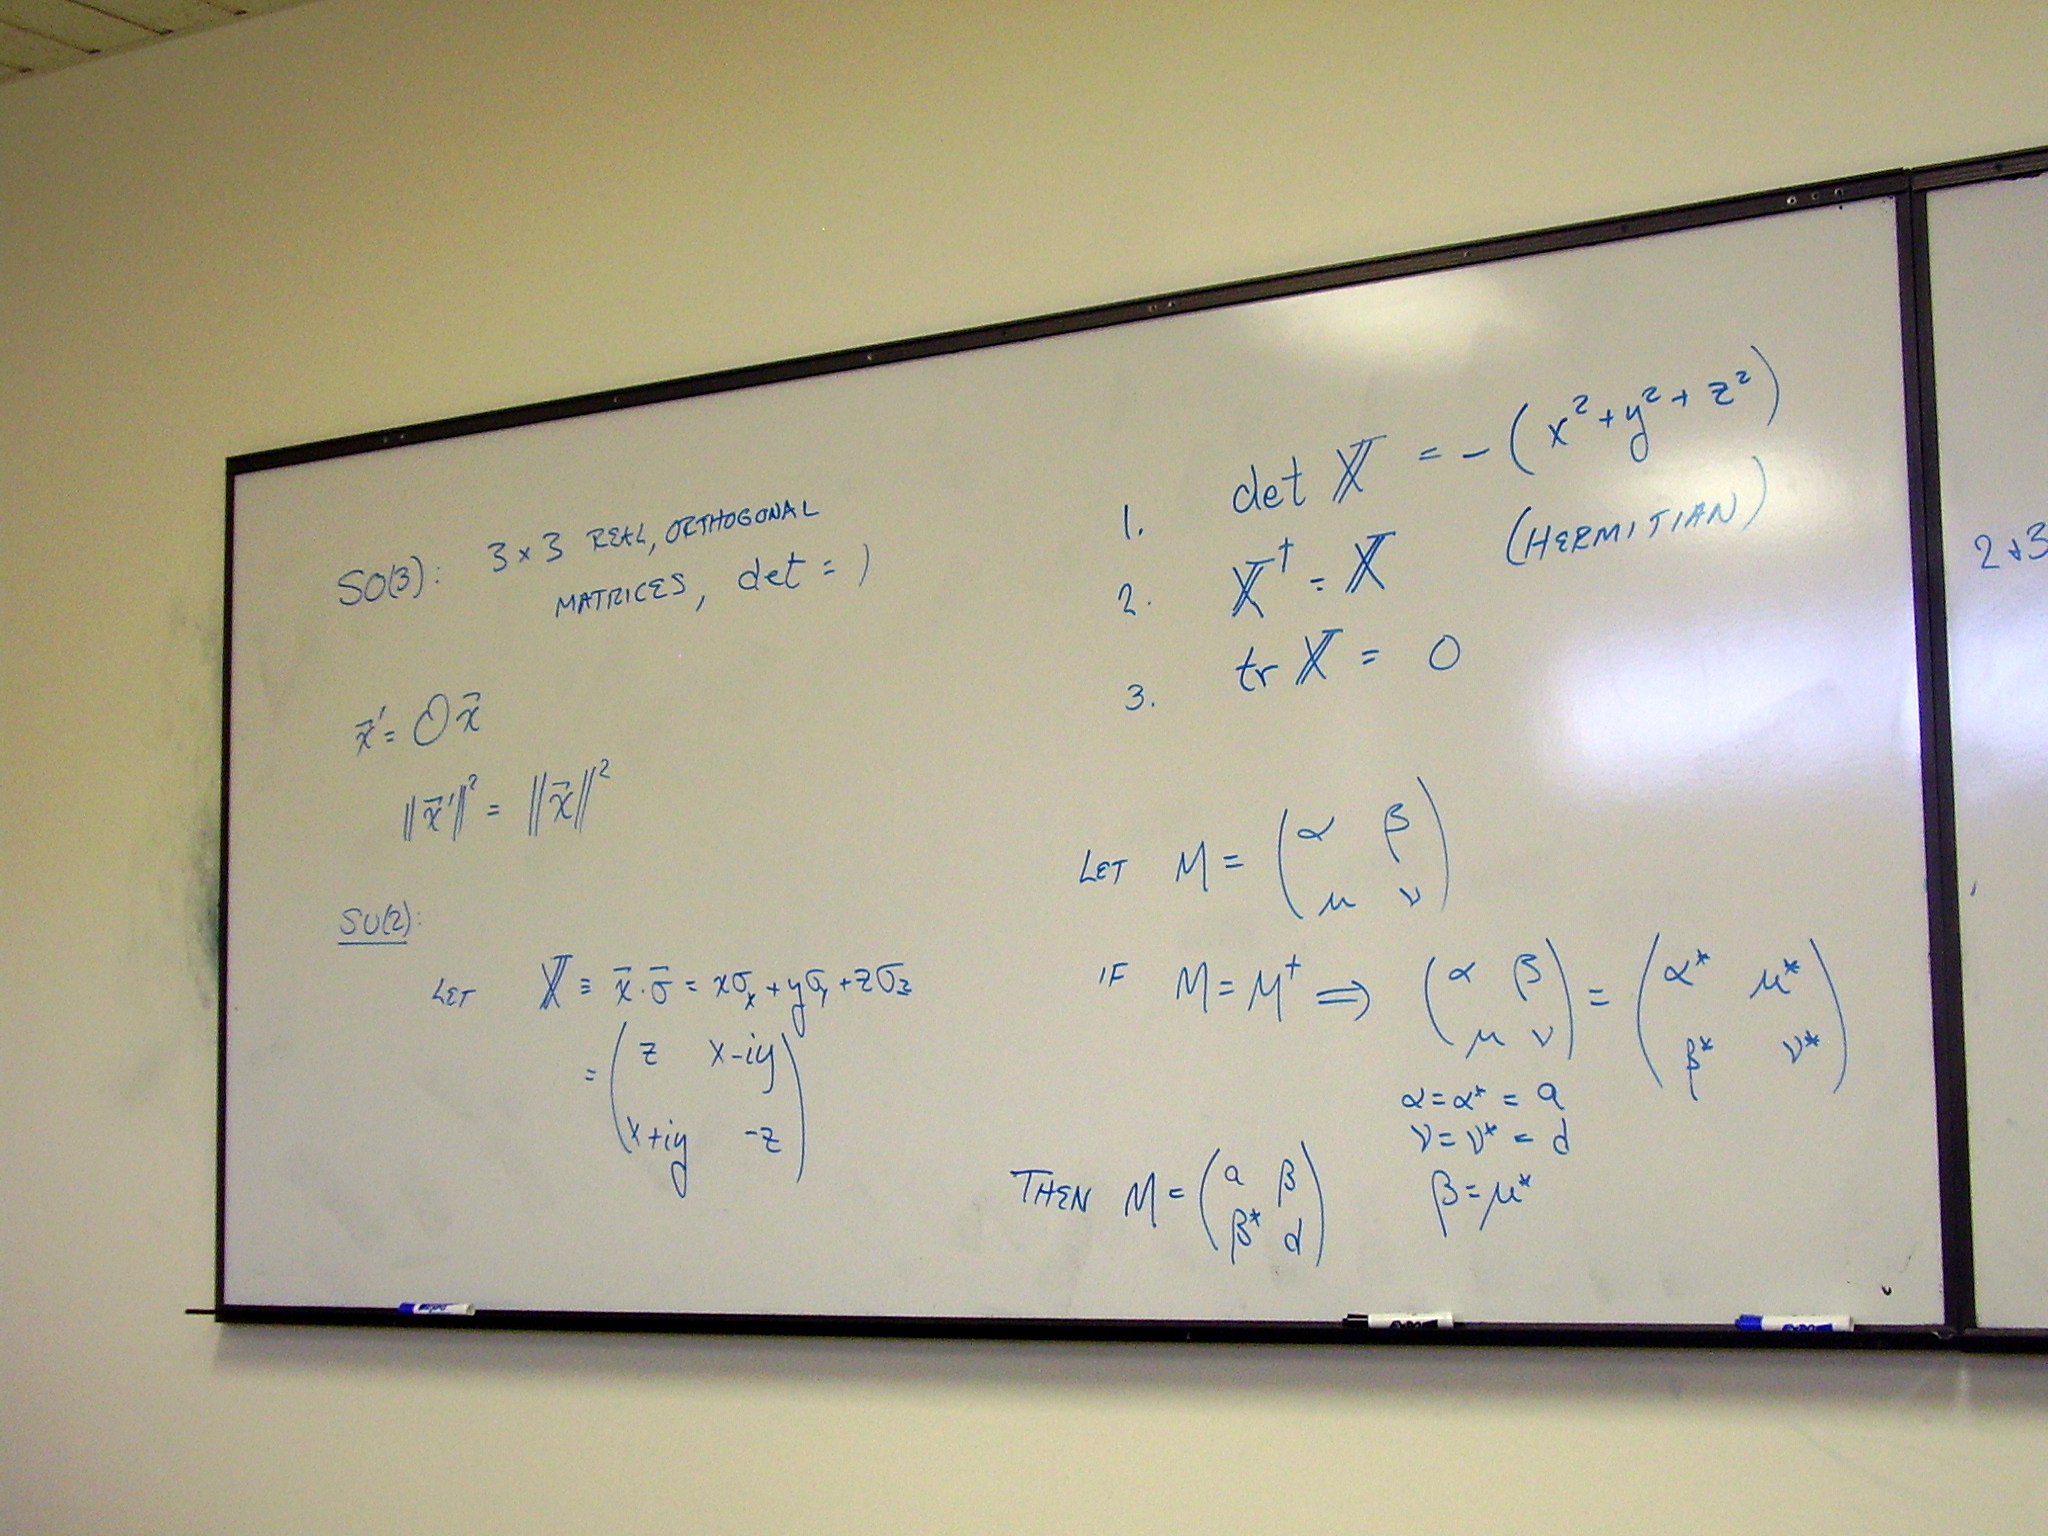 SO(3): 3×3 REAL, ORTHOGONAL
MATRICES, det = 1
x⃗' = O x⃗
||x⃗'||² = ||x⃗||²
SU(2):
LET 𝕏 ≡ x⃗·σ⃗ = xσₓ + yσ_y + zσ_z
= ( z x-iy
x+iy -z )
1. det 𝕏 = -(x² + y² + z²)
2. 𝕏† = 𝕏 (HERMITIAN)
3. tr 𝕏 = 0
LET M = ( α β
μ ν )
IF M = M† ⟹ ( α β
μ ν ) = ( α* μ*
β* ν* )
α = α* = a
ν = ν* = d
β = μ*
THEN M = ( a β
β* d )